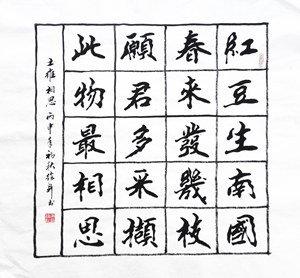 紅豆生南國
春來發幾枝
願君多采擷
此物最相思
王維相思 丙申年初秋